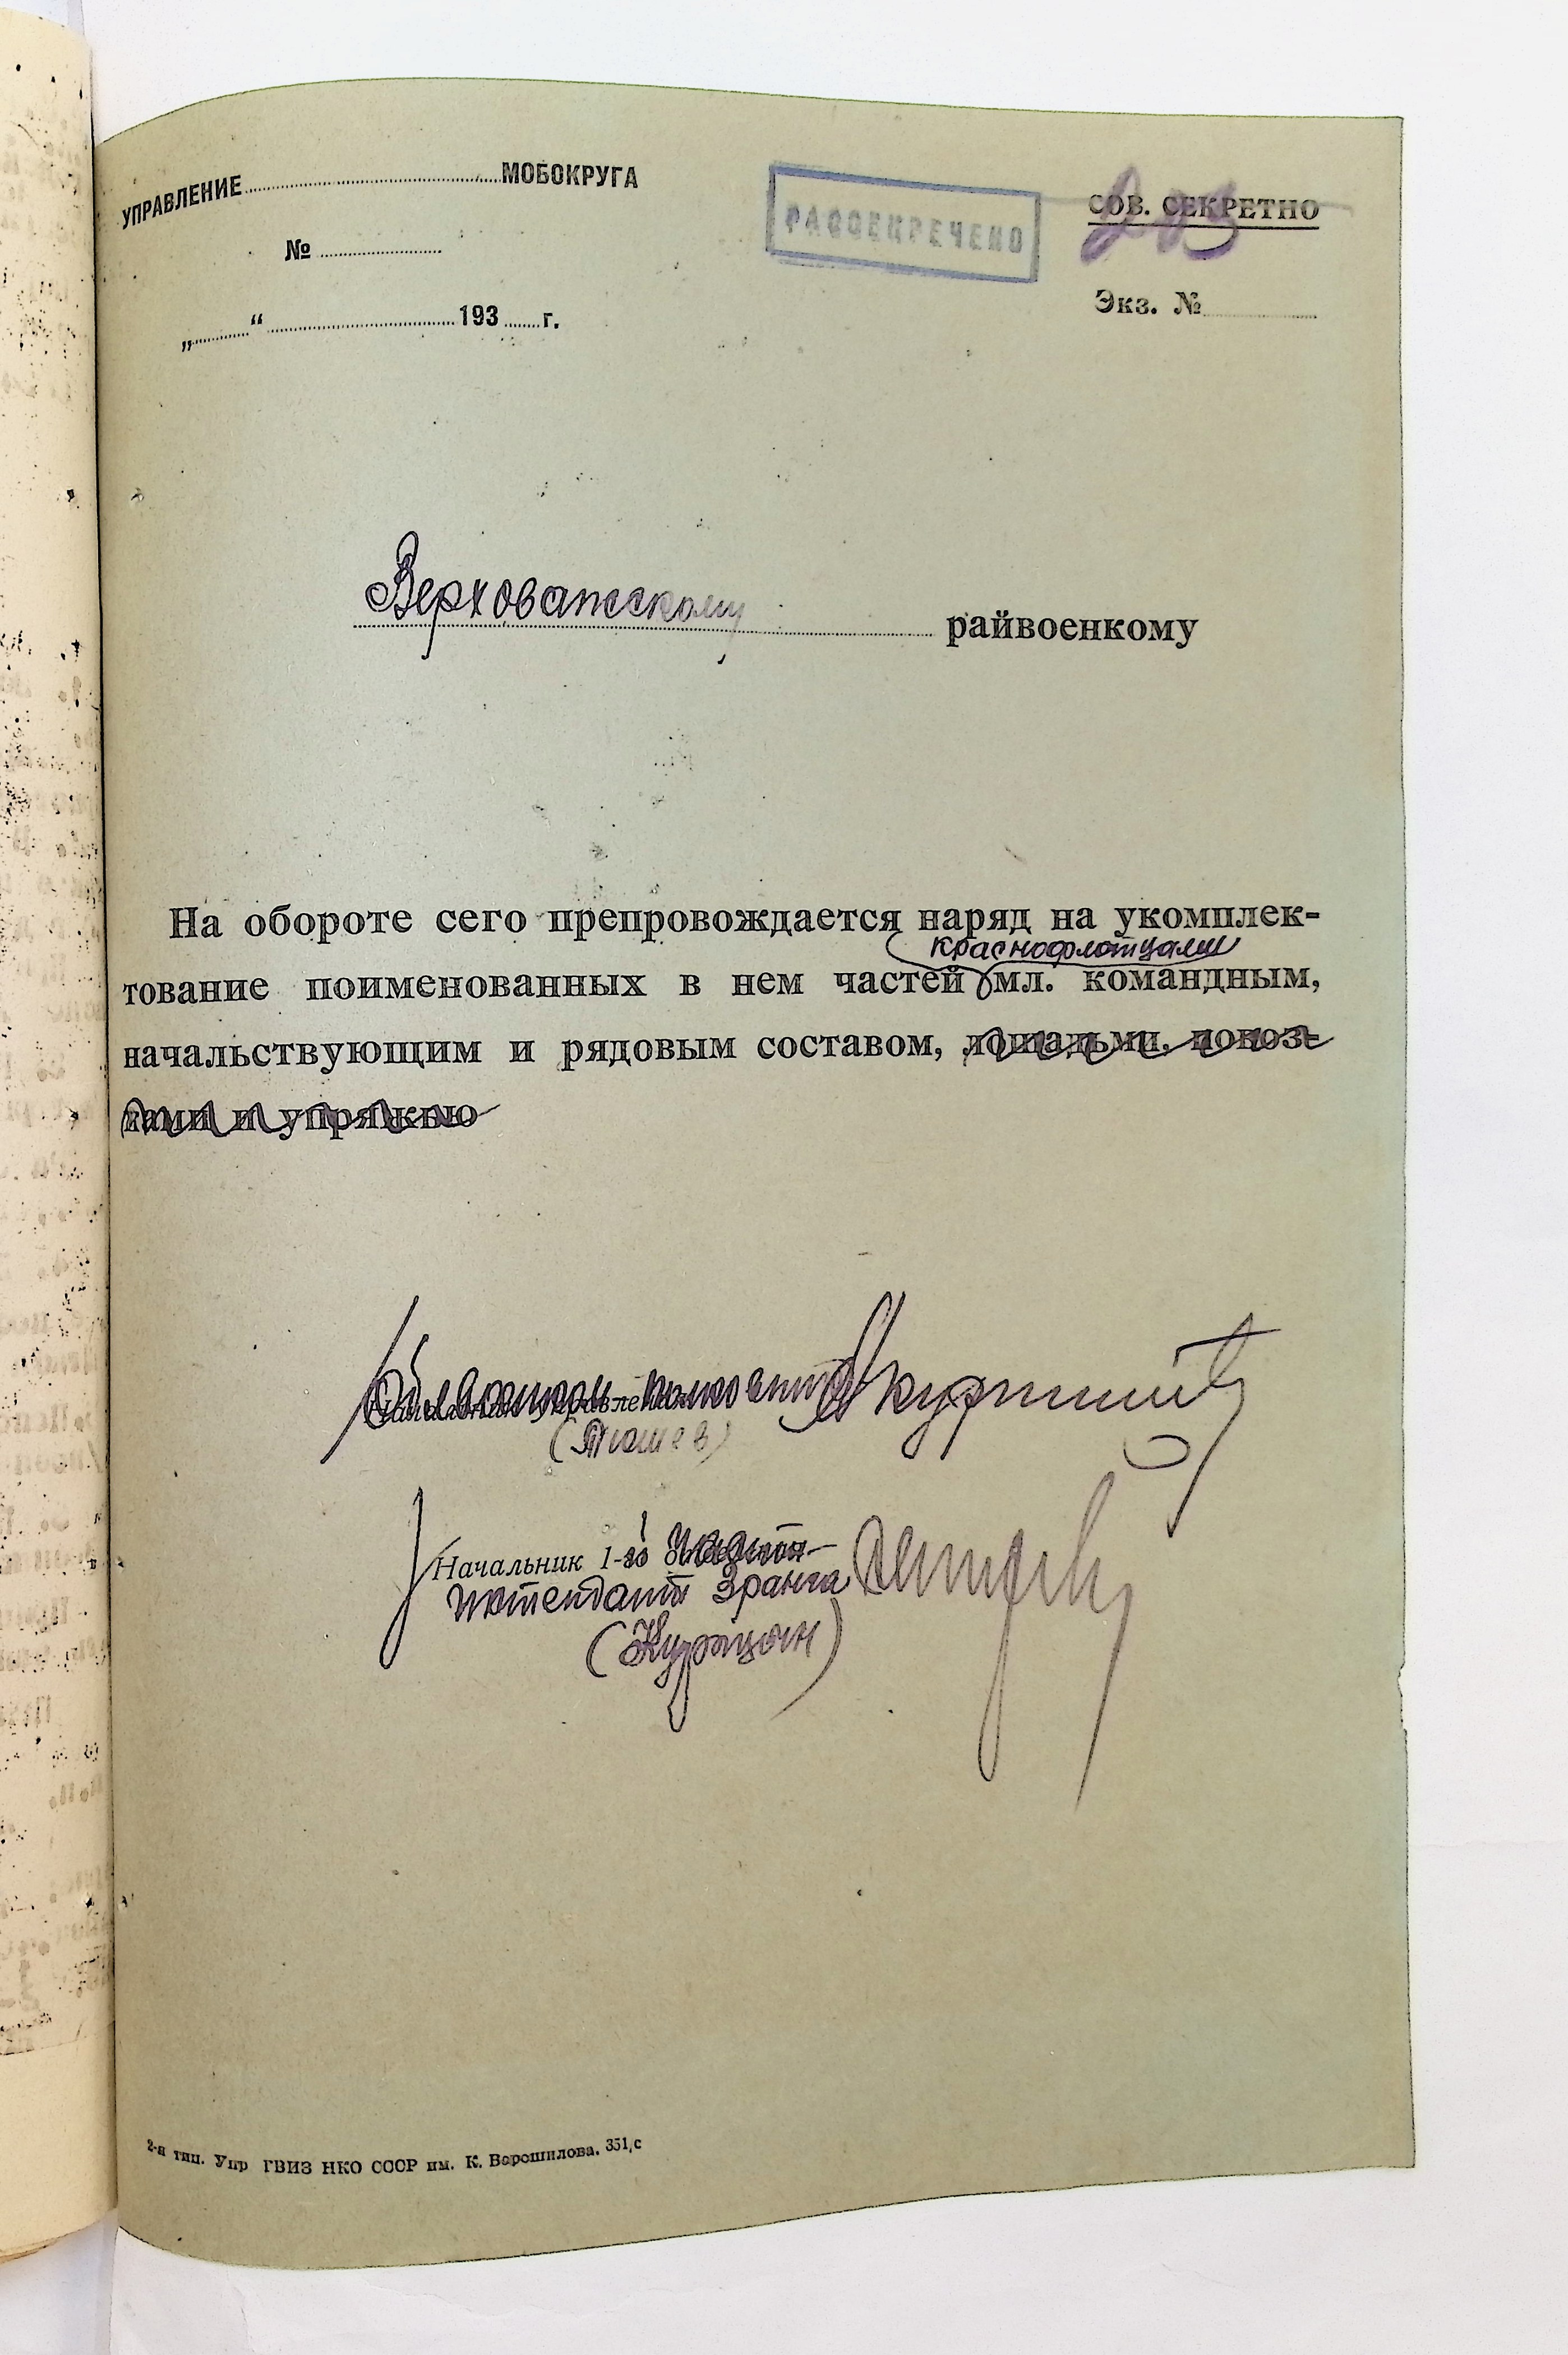 УПРАВЛЕНИЕ МОБОКРУГА
№
„ “ 193 г.
РАССЕКРЕЧЕНО
СОВ. СЕКРЕТНО
Экз. №
Верховажскому райвоенкому
На обороте сего препровождается наряд на укомплек-
краснофлотцами
тование поименованных в нем частей мл. командным,
начальствующим и рядовым составом, лошадьми, повоз-
ками и упряжью
Начальник 1-й части
Интендант 3 ранга
2-я тип. Упр ГВИЗ НКО СССР им. К. Ворошилова. 351,с